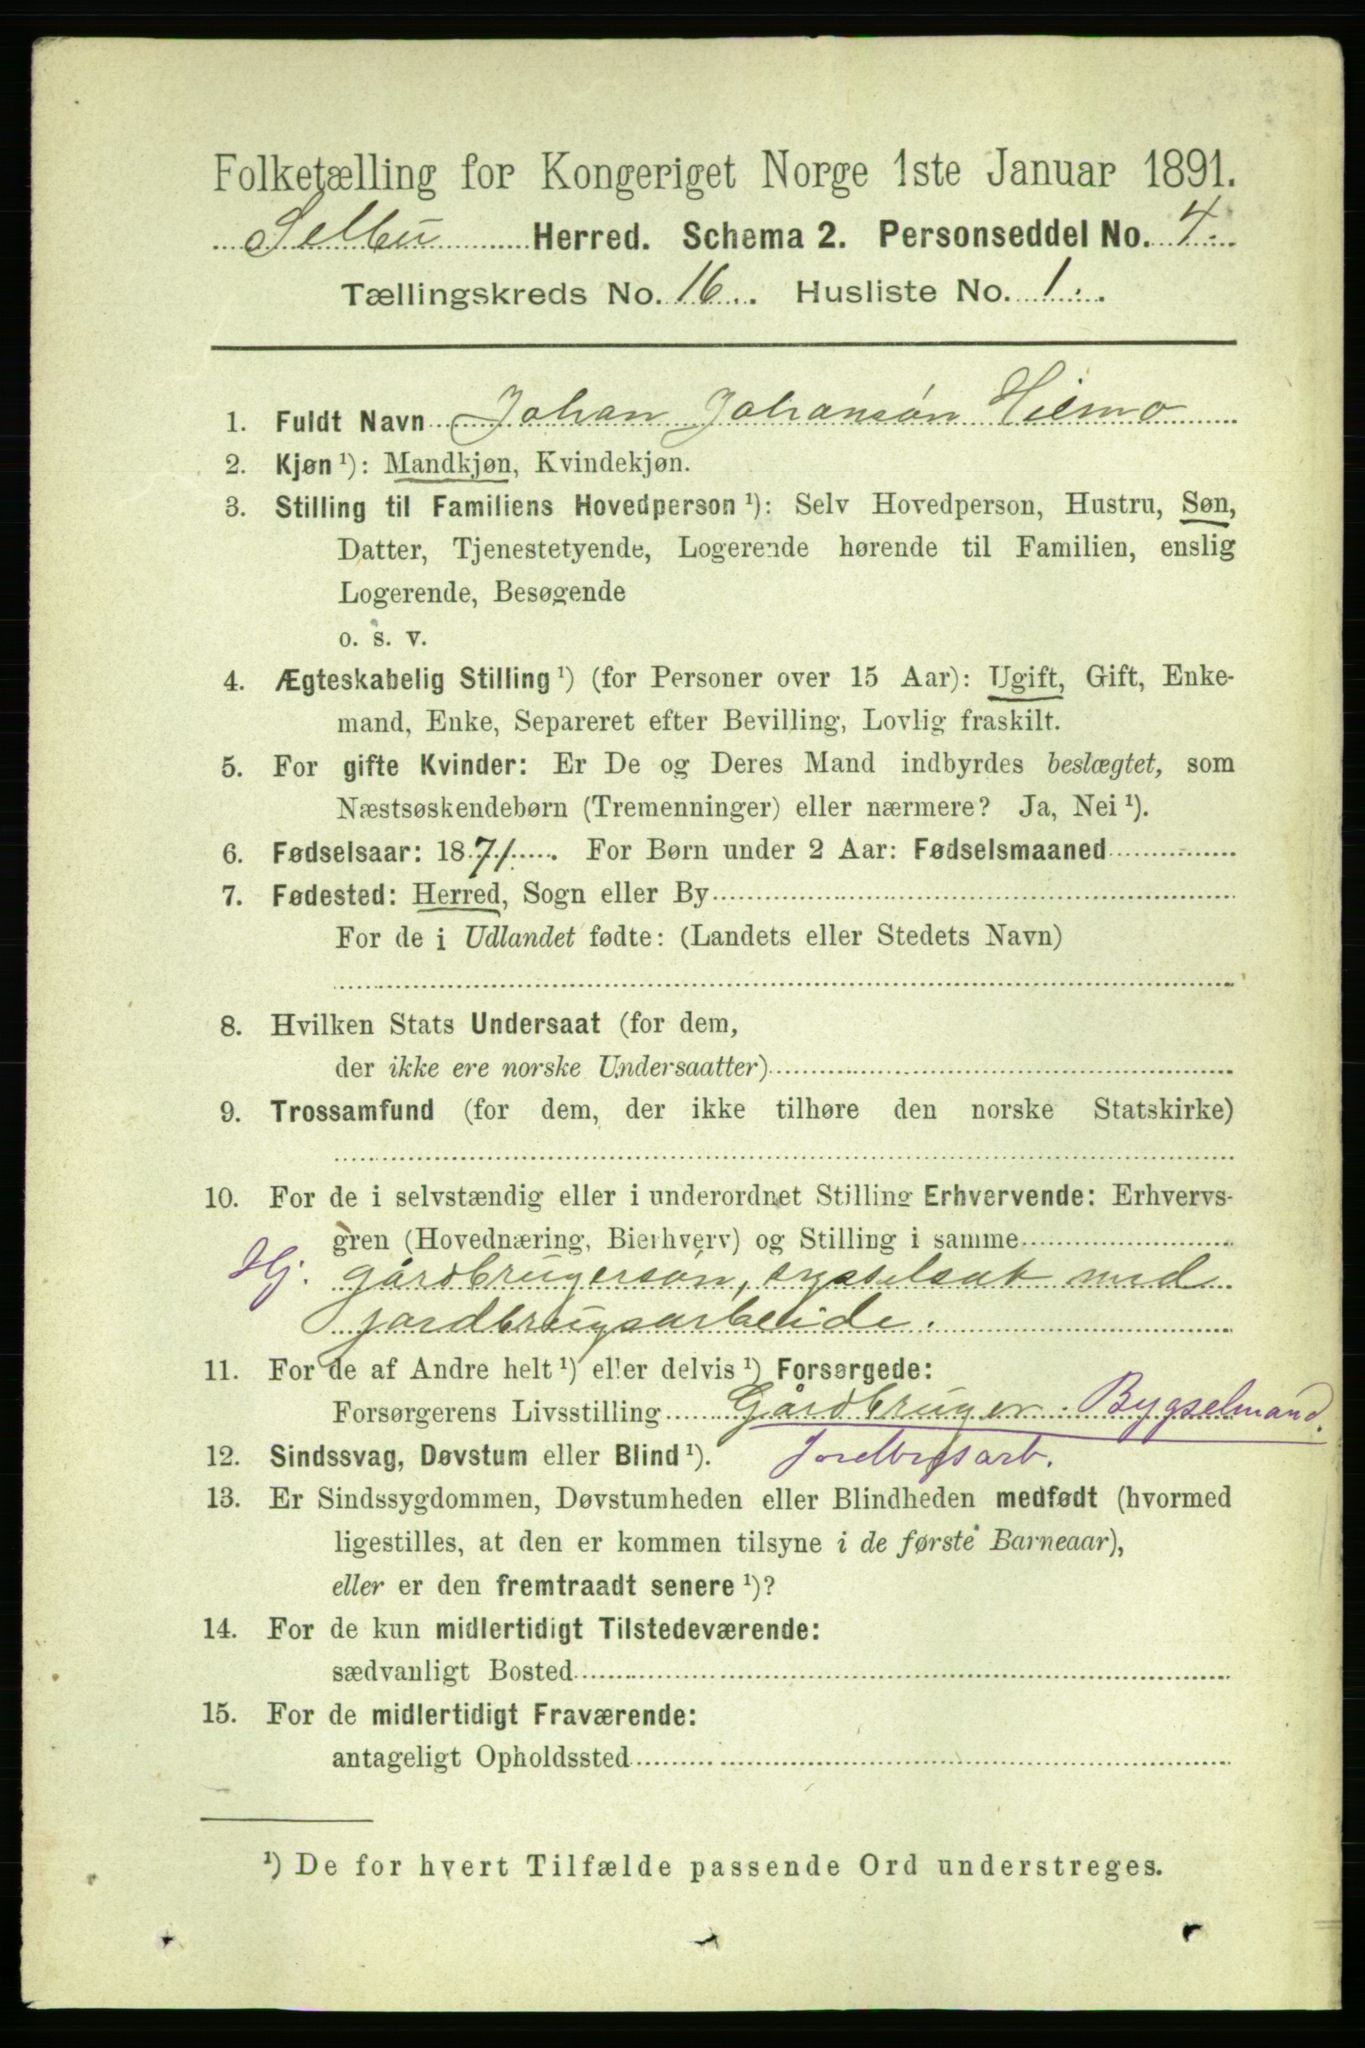 Folketælling for Kongeriget Norge 1ste Januar 1891.
Selbu Herred. Schema 2. Personseddel No. 4.
Tællingskreds No. 16. Husliste No. 1.
1. Fuldt Navn Johan Johansøn Hilmo
2. Kjøn ¹): Mandkjøn, Kvindekjøn.
3. Stilling til Familiens Hovedperson ¹): Selv Hovedperson, Hustru, Søn,
Datter, Tjenestetyende, Logerende hørende til Familien, enslig
Logerende, Besøgende
o. s. v.
4. Ægteskabelig Stilling ¹) (for Personer over 15 Aar): Ugift, Gift, Enke-
mand, Enke, Separeret efter Bevilling, Lovlig fraskilt.
5. For gifte Kvinder: Er De og Deres Mand indbyrdes beslægtet, som
Næstsøskendebørn (Tremenninger) eller nærmere? Ja, Nei ¹).
6. Fødselsaar: 1871. For Børn under 2 Aar: Fødselsmaaned
7. Fødested: Herred, Sogn eller By
For de i Udlandet fødte: (Landets eller Stedets Navn)
8. Hvilken Stats Undersaat (for dem,
der ikke ere norske Undersaatter)
9. Trossamfund (for dem, der ikke tilhøre den norske Statskirke)
10. For de i selvstændig eller i underordnet Stilling Erhvervende: Erhvervs-
gren (Hovednæring, Bierhverv) og Stilling i samme
Hj. gårdbrugersøn, sysselsat med
jordbrugsarbeide.
11. For de af Andre helt ¹) eller delvis ¹) Forsørgede:
Forsørgerens Livsstilling Gårdbruger. Bygselmand.
12. Sindssvag, Døvstum eller Blind ¹). Jordbrgsarb.
13. Er Sindssygdommen, Døvstumheden eller Blindheden medfødt (hvormed
ligestilles, at den er kommen tilsyne i de første Barneaar),
eller er den fremtraadt senere ¹)?
14. For de kun midlertidigt Tilstedeværende:
sædvanligt Bosted
15. For de midlertidigt Fraværende:
antageligt Opholdssted
¹) De for hvert Tilfælde passende Ord understreges.